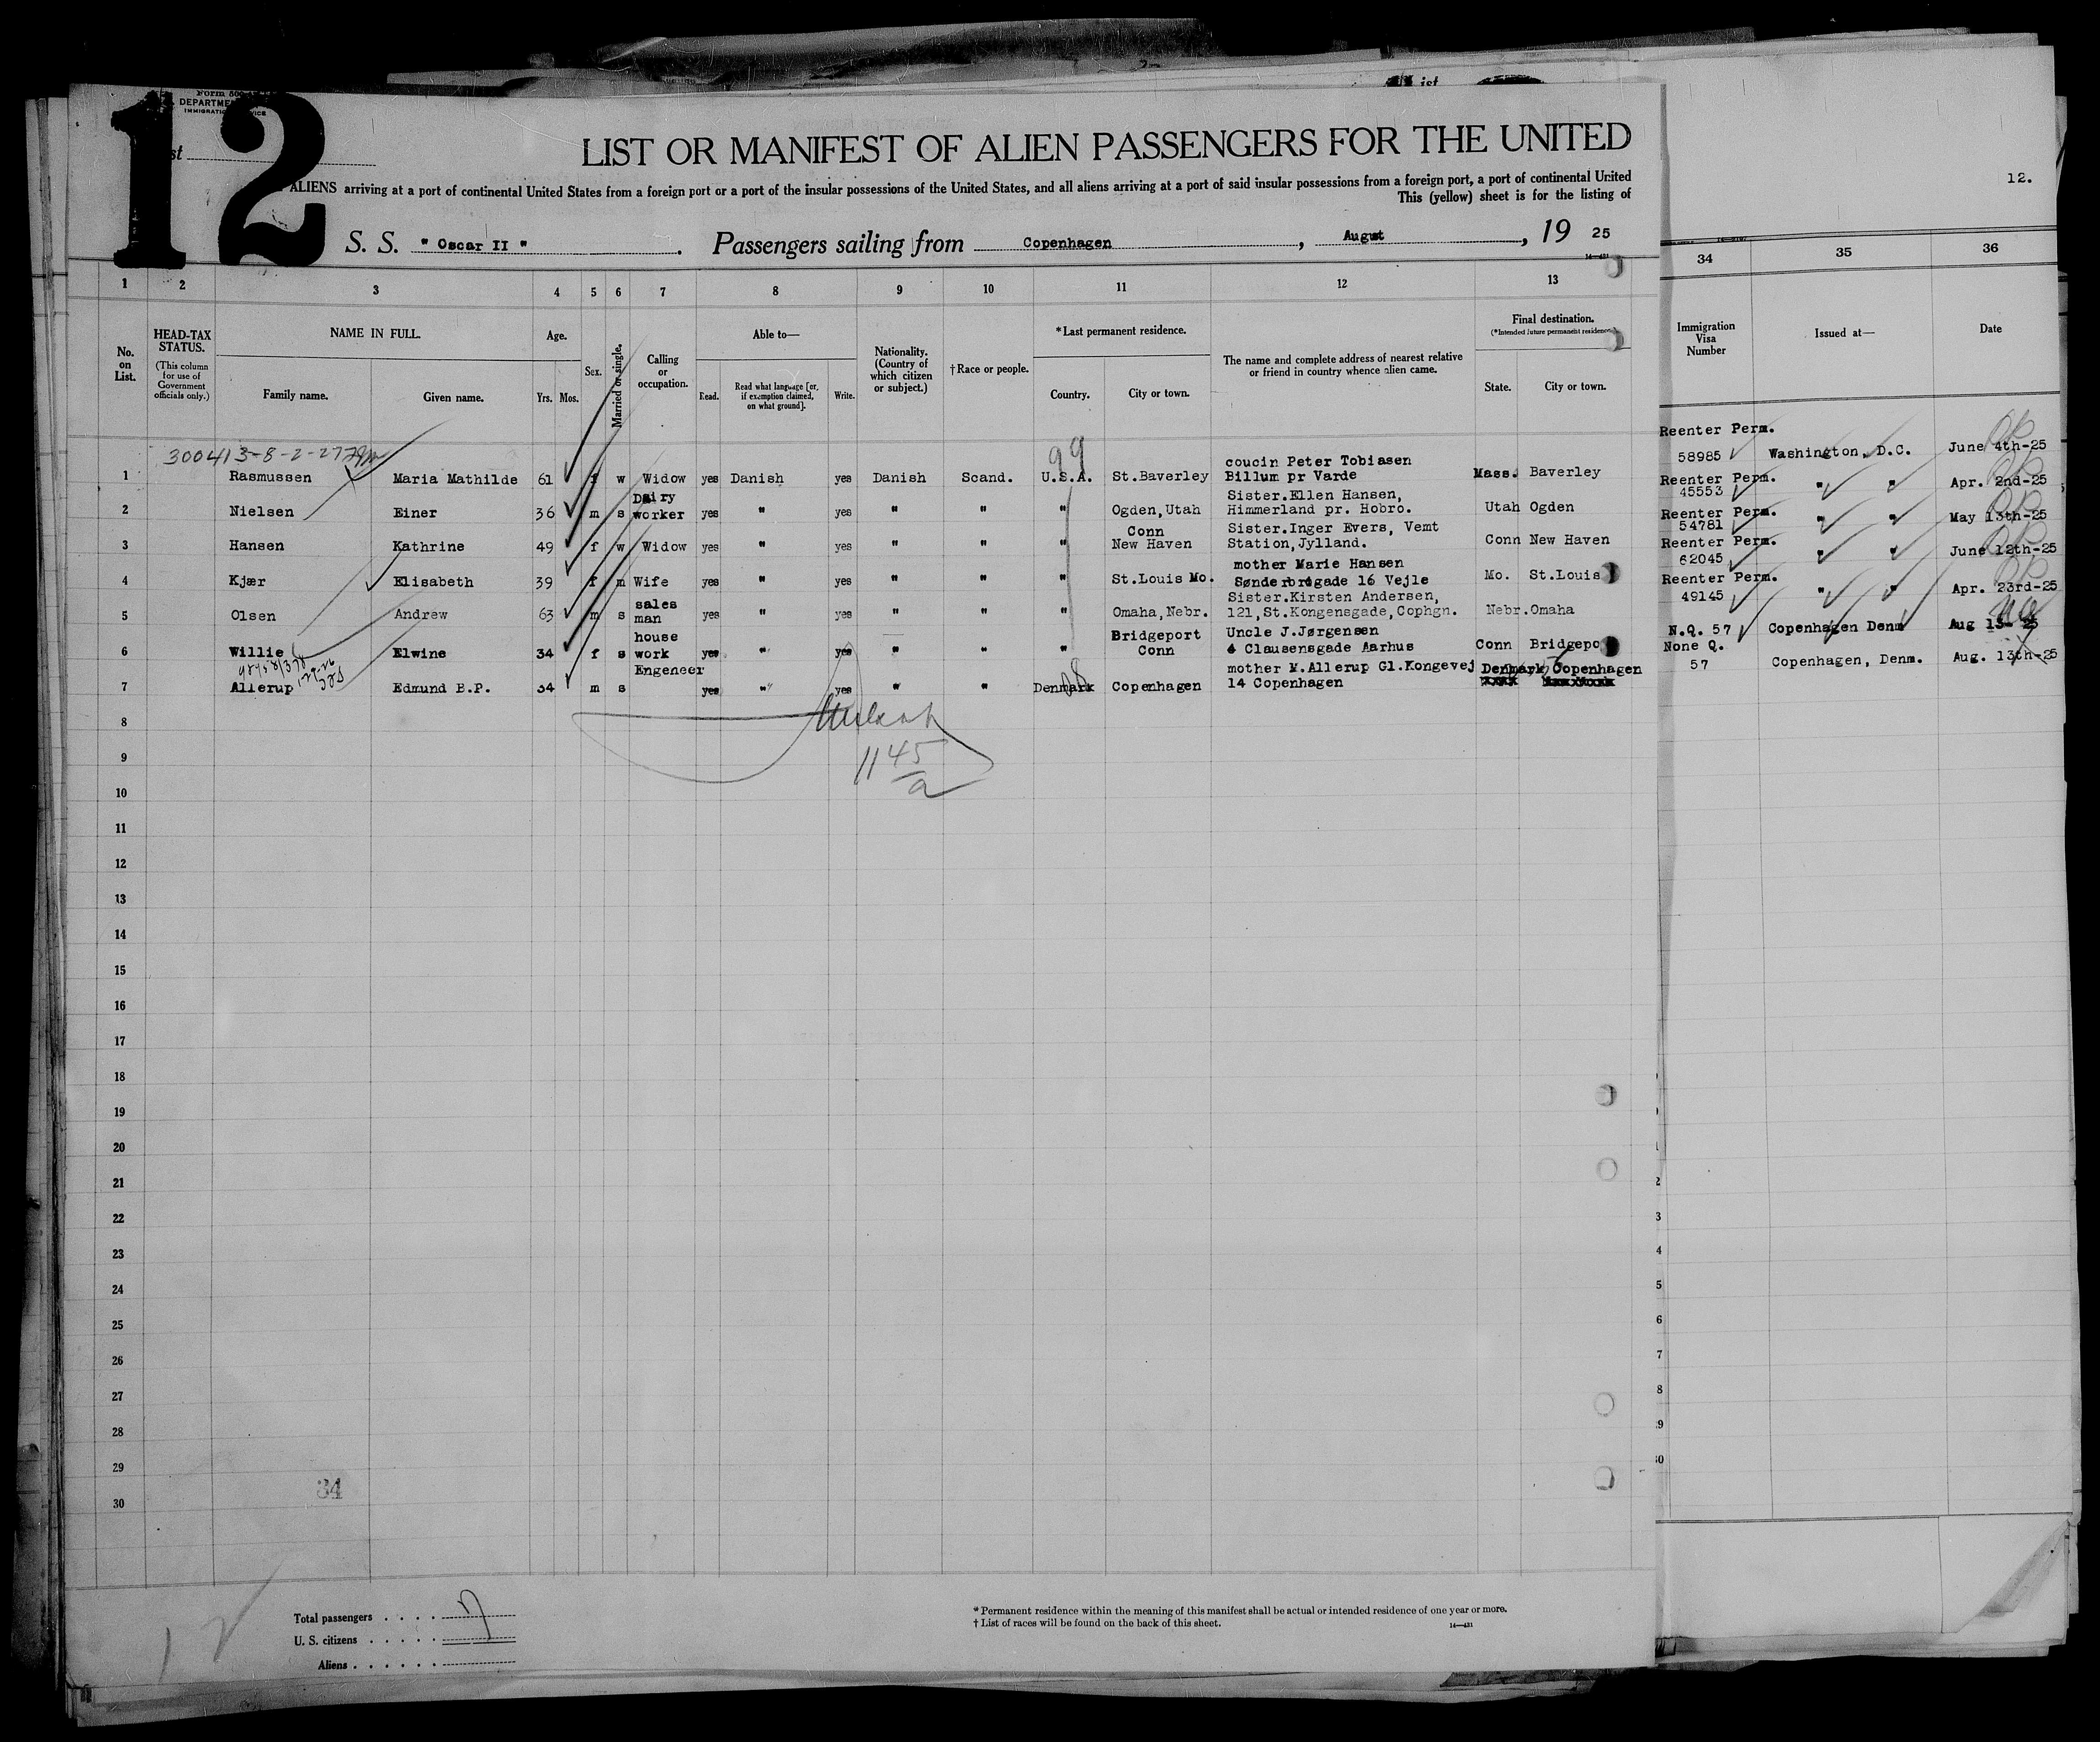 12
Form 500
DEPARTMENT
IMMIGRATION SERVICE
LIST OR MANIFEST OF ALIEN PASSENGERS FOR THE UNITED
ALIENS arriving at a port of continental United States from a foreign port or a port of the insular possessions of the United States, and all aliens arriving at a port of said insular possessions from a foreign port, a port of continental United
This (yellow) sheet is for the listing of
12.
S. S. " Oscar II " . Passengers sailing from Copenhagen , August , 19 25
1 2 3 4 5 6 7 8 9 10 11 12 13 34 35 36
No. on List.
HEAD-TAX STATUS.
(This column for use of Government officials only.)
NAME IN FULL.
Family name. Given name.
Age.
Yrs. Mos.
Sex.
Married or single.
Calling or occupation.
Able to—
Read. Read what language [or, if exemption claimed, on what ground]. Write.
Nationality. (Country of which citizen or subject.)
†Race or people.
*Last permanent residence.
Country. City or town.
The name and complete address of nearest relative or friend in country whence alien came.
Final destination.
(*Intended future permanent residence.)
State. City or town.
Immigration Visa Number
Issued at—
Date
300413-8-2-27
99
1 Rasmussen Maria Mathilde 61 f w Widow yes Danish yes Danish Scand. U.S.A. St.Baverley coucin Peter Tobiasen Billum pr Varde Mass. Baverley Reenter Perm. 58985 Washington, D.C. June 4th-25
2 Nielsen Einer 36 m s Dairy worker yes " yes " " " Ogden,Utah Sister.Ellen Hansen, Himmerland pr. Hobro. Utah Ogden Reenter Perm. 45553 " " Apr. 2nd-25
3 Hansen Kathrine 49 f w Widow yes " yes " " " Conn New Haven Sister.Inger Evers, Vemt Station,Jylland. Conn New Haven Reenter Perm. 54781 " " May 13th-25
4 Kjær Elisabeth 39 f m Wife yes " yes " " " St.Louis Mo. mother Marie Hansen Sønderbrogade 16 Vejle Mo. St.Louis Reenter Perm. 62045 " " June 12th-25
5 Olsen Andrew 63 m s sales man yes " yes " " " Omaha,Nebr. Sister.Kirsten Andersen, 121,St.Kongensgade,Cophgn. Nebr.Omaha Reenter Perm. 49145 " " Apr. 23rd-25
6 Willie Elwine 34 f s house work yes " yes " " " Bridgeport Conn Uncle J.Jørgensen 4 Clausensgade Aarhus Conn Bridgepo N.Q. 57 Copenhagen Denm Aug 13- 25
7 Allerup Edmund B.P. 34 m s Engeneer yes " yes " " Denmark Copenhagen mother M.Allerup Gl.Kongevej 14 Copenhagen Denmark Copenhagen None Q. 57 Copenhagen, Denm. Aug. 13th-25
8
9
1145
10
11
12
13
14
15
16
17
18
19
20
21
22
23
24
25
26
27
28
29
34
30
12
Total passengers . . . . 7
U. S. citizens . . . . .
Aliens . . . . . .
* Permanent residence within the meaning of this manifest shall be actual or intended residence of one year or more.
† List of races will be found on the back of this sheet.
14—431